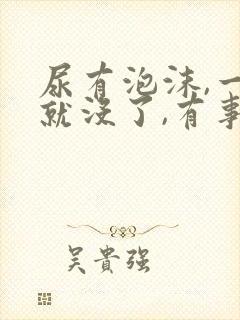 尿有泡沫,一
就没了,有事
吴貴强